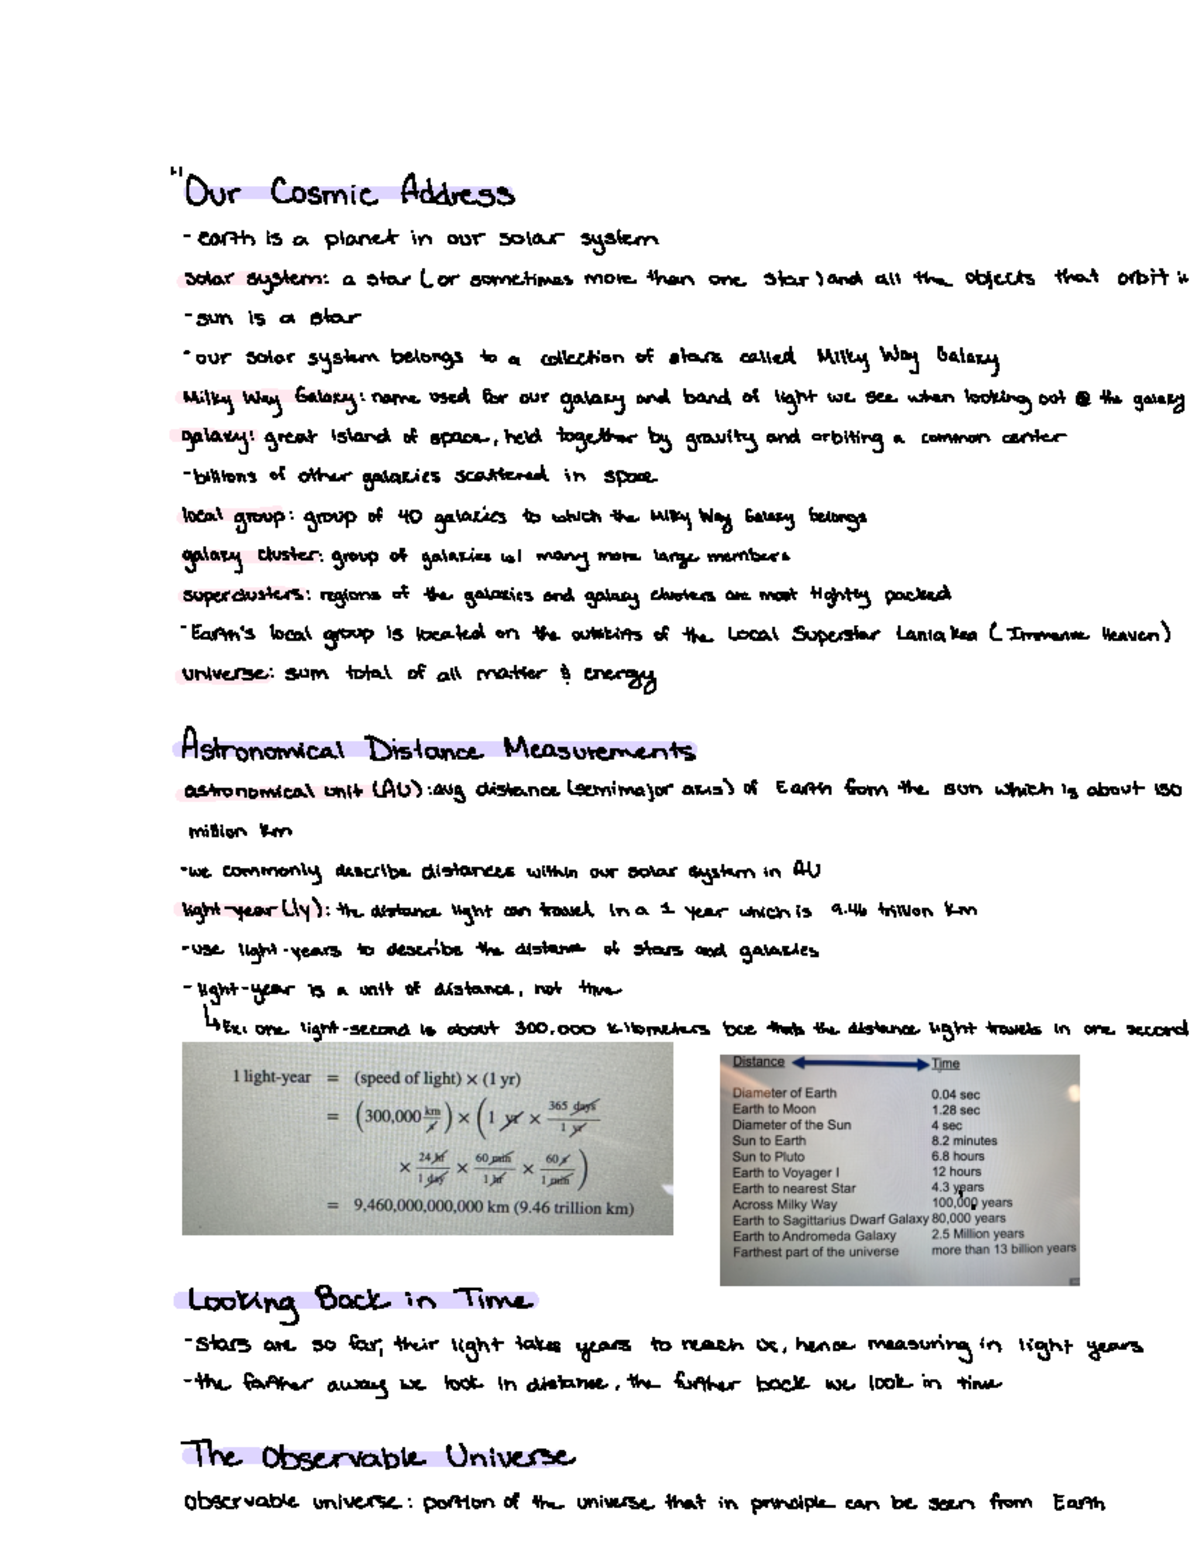 1.1 Our Cosmic Address
- earth is a planet in our solar system
solar system: a star (or sometimes more than one star) and all the objects that orbit it
- sun is a star
- our solar system belongs to a collection of stars called Milky Way Galaxy
Milky Way Galaxy: name used for our galaxy and band of light we see when looking out @ the galaxy
galaxy: great island of space, held together by gravity and orbiting a common center
- billions of other galaxies scattered in space
local group: group of 40 galaxies to which the Milky Way Galaxy belongs
galaxy cluster: group of galaxies w/ many more large members
superclusters: regions of the galaxies and galaxy clusters are most tightly packed
- Earth's local group is located on the outskirts of the Local Superstar Laniakea (Immense Heaven)
universe: sum total of all matter & energy
Astronomical Distance Measurements
astronomical unit (AU): avg distance (semimajor axis) of Earth from the sun which is about 150
million km
- we commonly describe distances within our solar system in AU
light-year (ly): the distance light can travel in a 1 year which is 9.46 trillion km
- use light-years to describe the distance of stars and galaxies
- light-year is a unit of distance, not time
↳ Ex: one light-second is about 300,000 kilometers bce thats the distance light travels in one second
1 light-year = (speed of light) × (1 yr)
= (300,000 km/s) × (1 yr × 365 days/1 yr
× 24 hr/1 day × 60 min/1 hr × 60 s/1 min)
= 9,460,000,000,000 km (9.46 trillion km)
Distance Time
Diameter of Earth 0.04 sec
Earth to Moon 1.28 sec
Diameter of the Sun 4 sec
Sun to Earth 8.2 minutes
Sun to Pluto 6.8 hours
Earth to Voyager I 12 hours
Earth to nearest Star 4.3 years
Across Milky Way 100,000 years
Earth to Sagittarius Dwarf Galaxy 80,000 years
Earth to Andromeda Galaxy 2.5 Million years
Farthest part of the universe more than 13 billion years
Looking Back in Time
- stars are so far, their light takes years to reach us, hence measuring in light years
- the farther away we look in distance, the further back we look in time
The Observable Universe
observable universe: portion of the universe that in principle can be seen from Earth